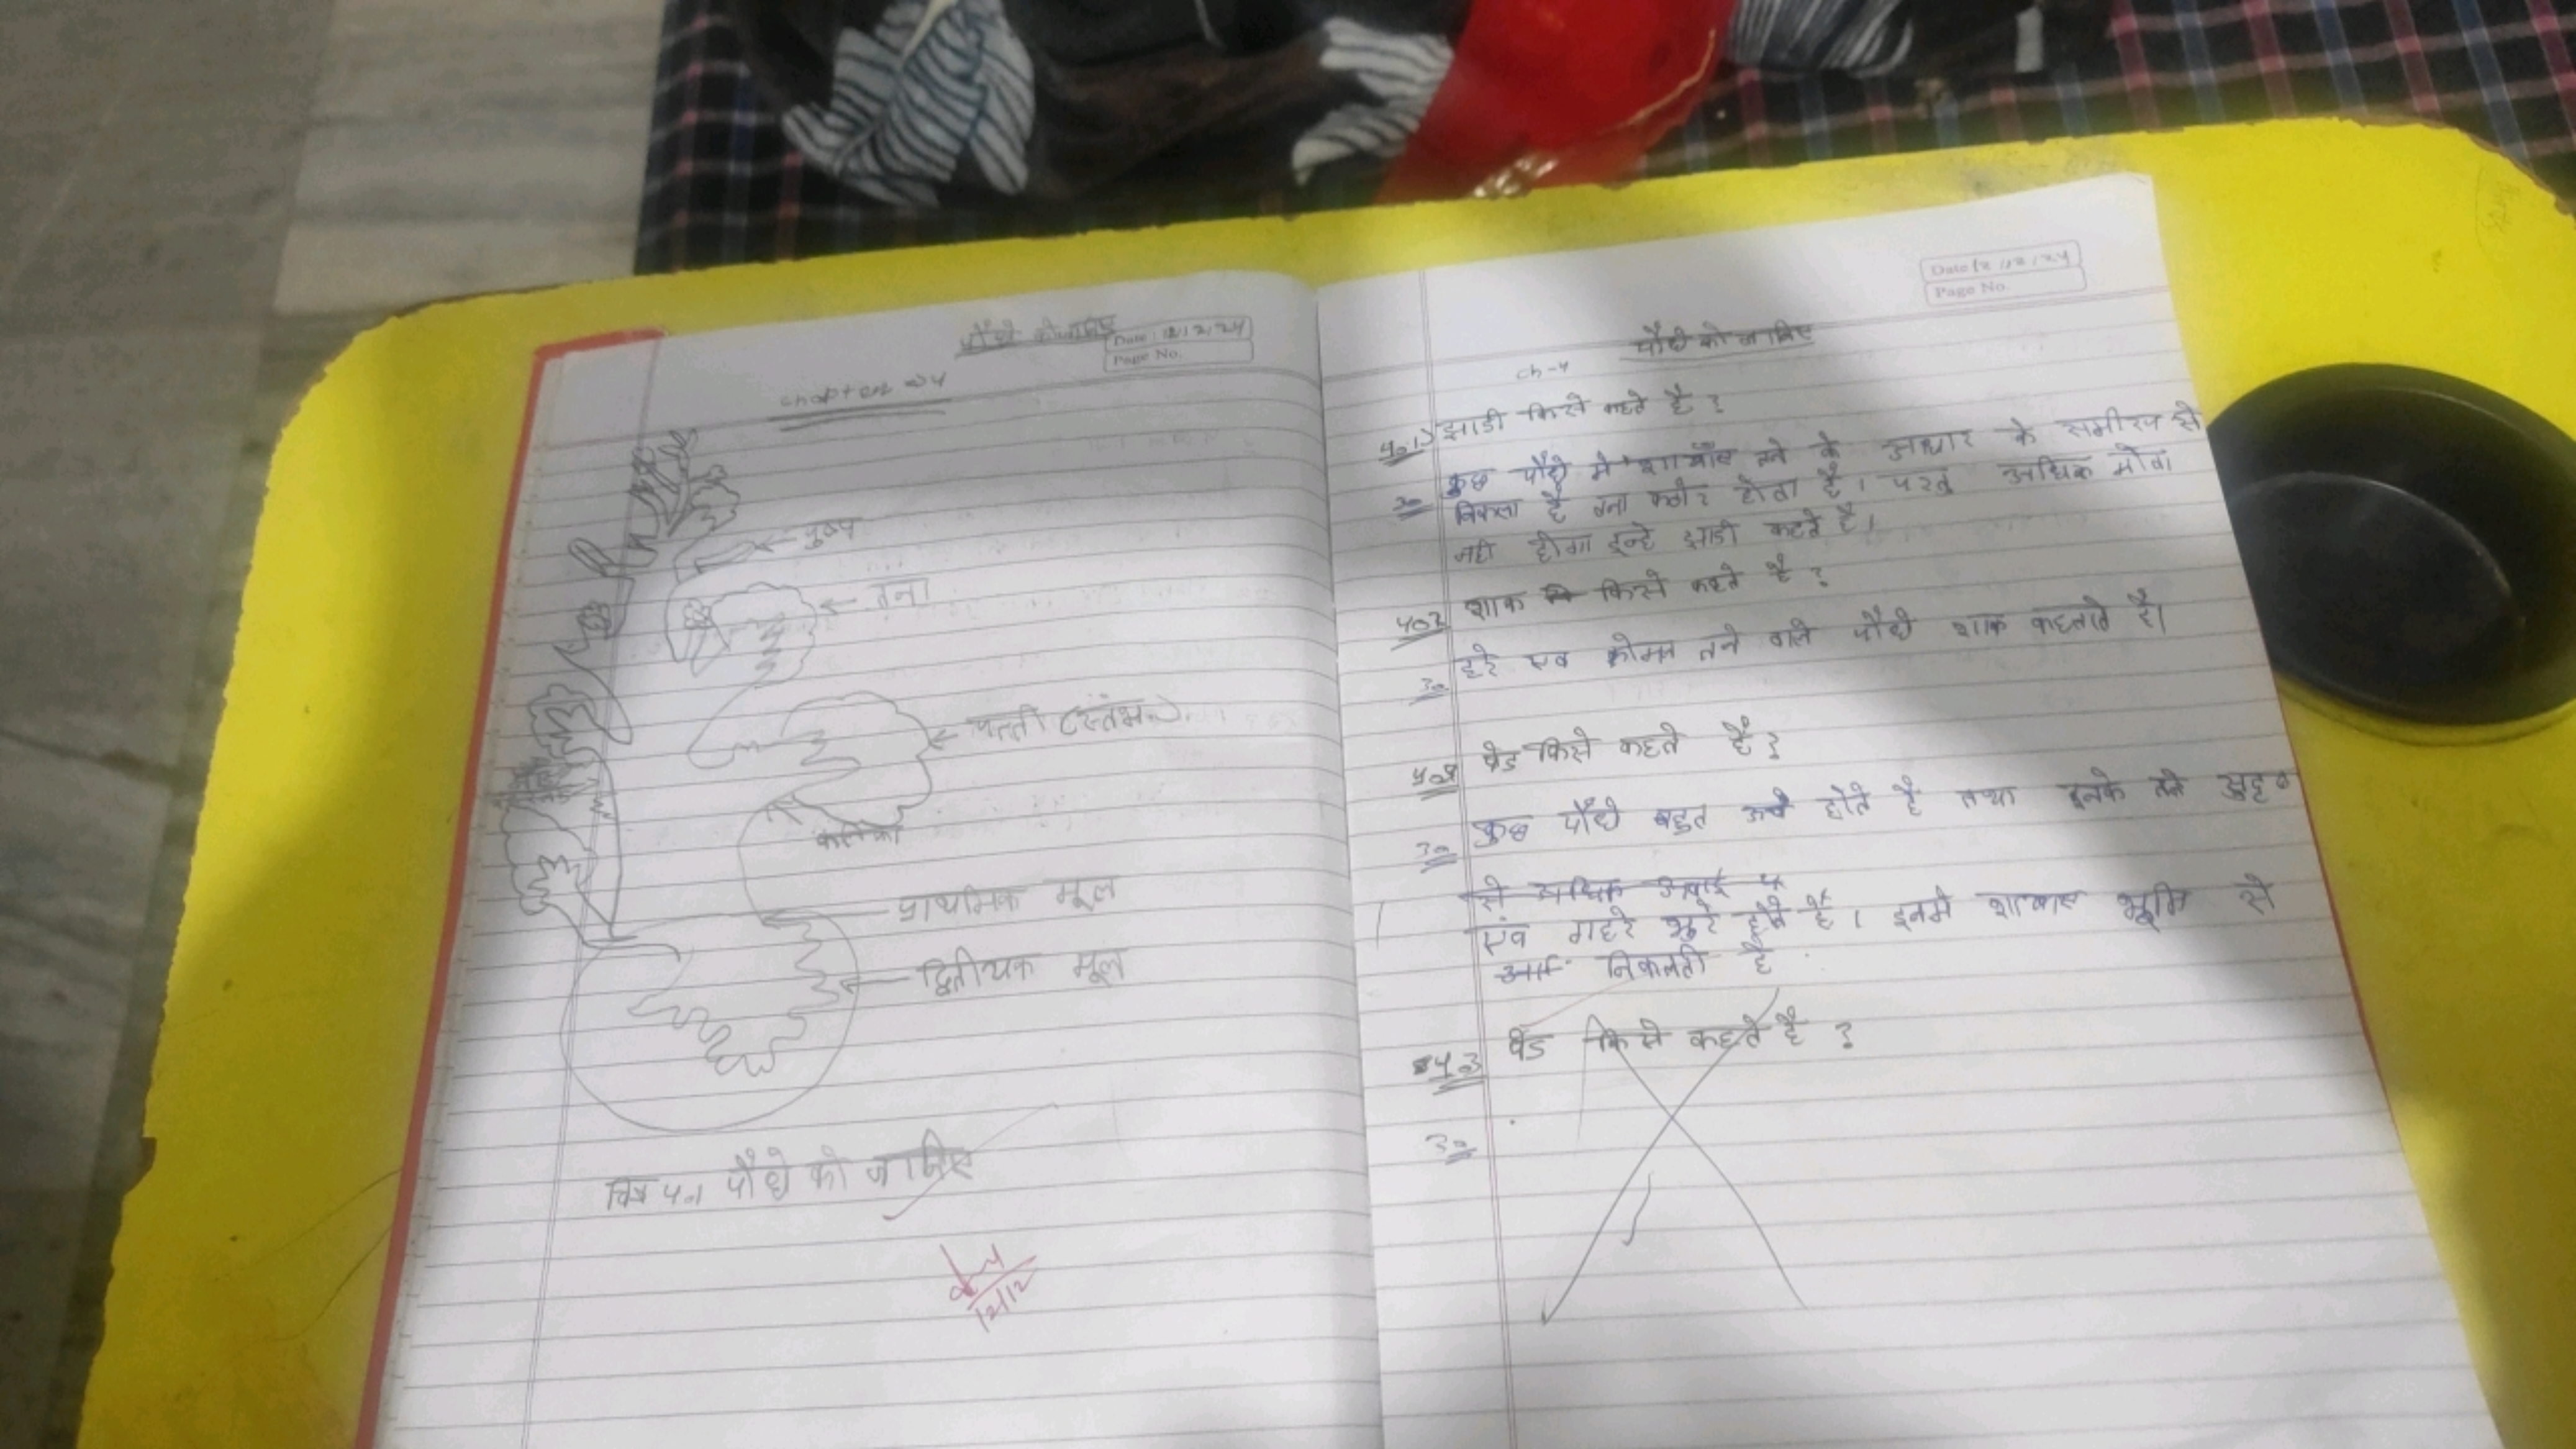 पौधे को जानिए
Date : 12/12/24
Page No.
chapter 4
पुष्प
तना
पत्ती (स्तंभ
कलिका
प्राथमिक मूल
द्वितीयक मूल
चित्र 4.1 पौधे को जानिए
12/12
Date 12/12/24
Page No.
पौधे को जानिए
ch-4
झाडी किसे कहते है ?
उ० कुछ पौधे मे शाखाँए तने के आधार के समीप से
निकला है तना कठोर होता है। परंतु अधिक मोटा
नही होगा इन्हे झाडी कहते है।
शाक किसे कहते है ?
उ० हरे एव कोमल तने वाले पौधे शाक कहलाते है।
पेड किसे कहते है ?
उ० कुछ पौधे बहुत ऊचे होते है तथा इनके तने सुदृढ
से अधिक ऊचाई
एंव गहरे भुरे होते है। इनमे शाखाए भूमि से
निकलती है
पेड किसे कहते है ?
उ०